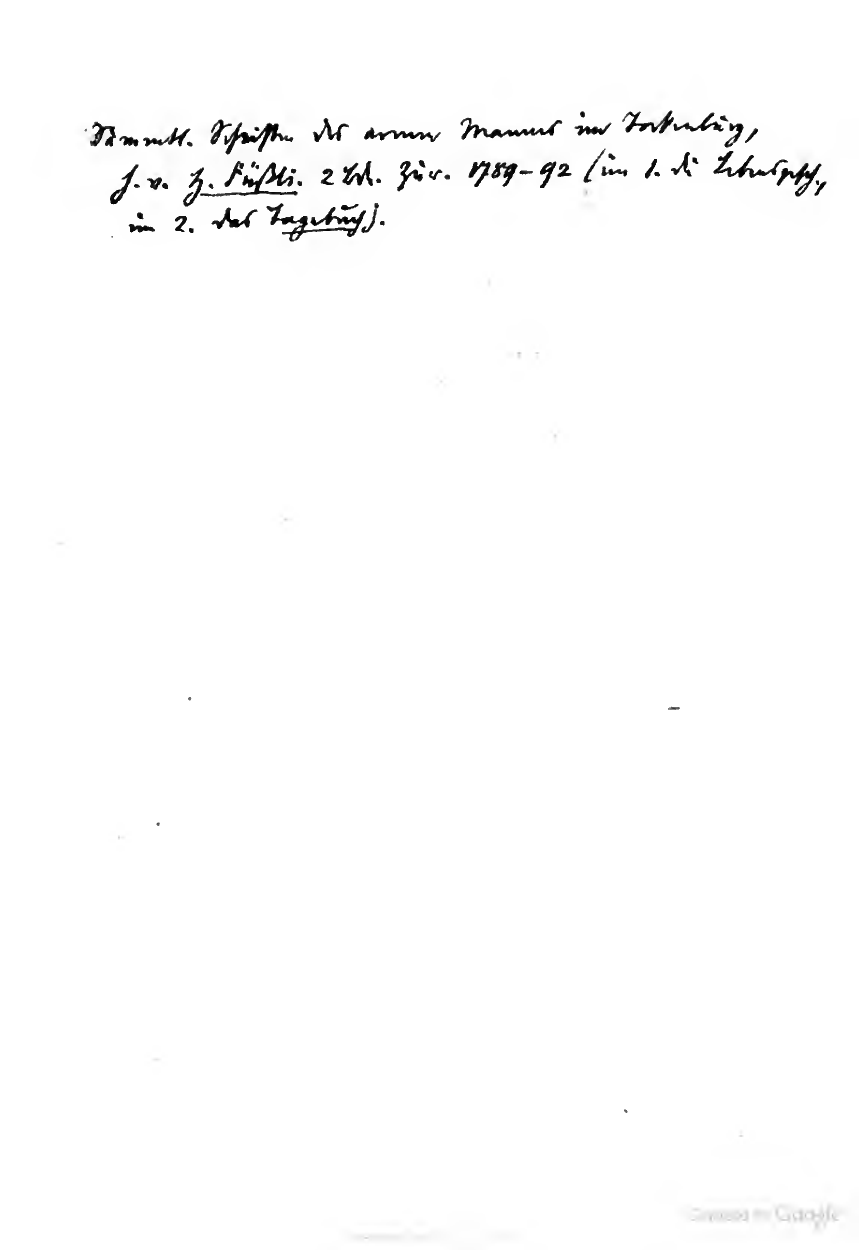 Sämmtl. Schriften des armen Mannes im Tockenburg,
h. v. H. Füßli. 2 Bd. Zür. 1789-92 (im 1. die Lebensgesch.,
im 2. das Tagebuch).
Google